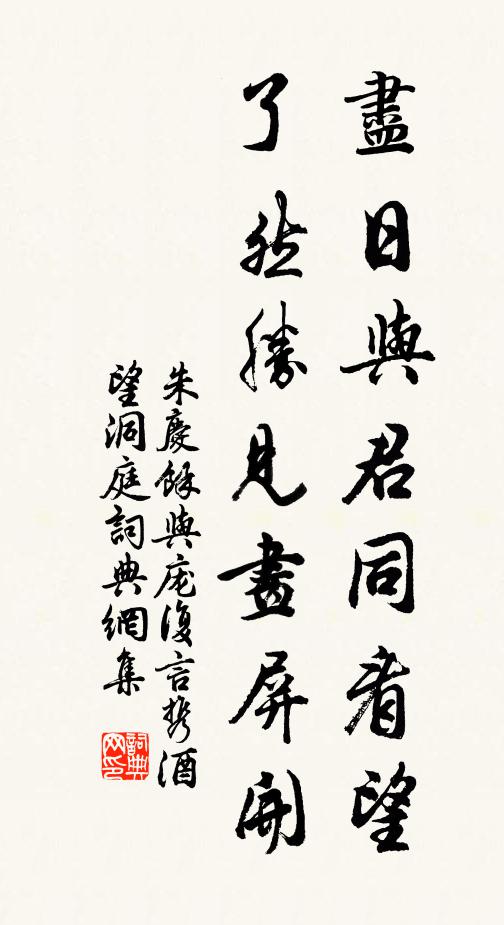 盡日與君同看望
了然勝見畫屏開
朱慶餘與龐復言攜酒
望洞庭詞典網集
詞典网印